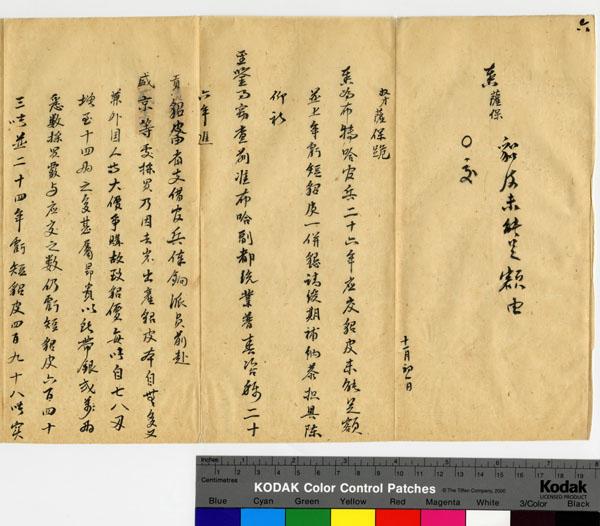 六
奏 薩保
貂皮未能足額由
○交
十一月初一日
奴才薩保跪
奏為布特哈官兵二十六年應交貂皮未能足額
並上年虧短貂皮一併懇請緩期補納恭摺具陳
仰祈
聖鑒事竊查前准布哈副都統業普春咨稱二十
六年進
貢貂皮由省支借官兵俸餉派員前赴
盛京等處採買乃因去歲出產貂皮本自無多又
兼外國人出大價爭購故致貂價每張自七八兩
增至十四兩之多甚屬昂貴以所帶銀貳萬兩
悉數採買覈與應交之數仍虧短貂皮六百四十
三張並二十四年虧短貂皮四百九十八張實
Inches 1 2 3 4 5 6 7 8
Centimetres 1 2 3 4 5 6 7 8 9 10 11 12 13 14 15 16 17 18 19
KODAK Color Control Patches © The Tiffen Company, 2000
Kodak
LICENSED PRODUCT
Blue Cyan Green Yellow Red Magenta White 3/Color Black